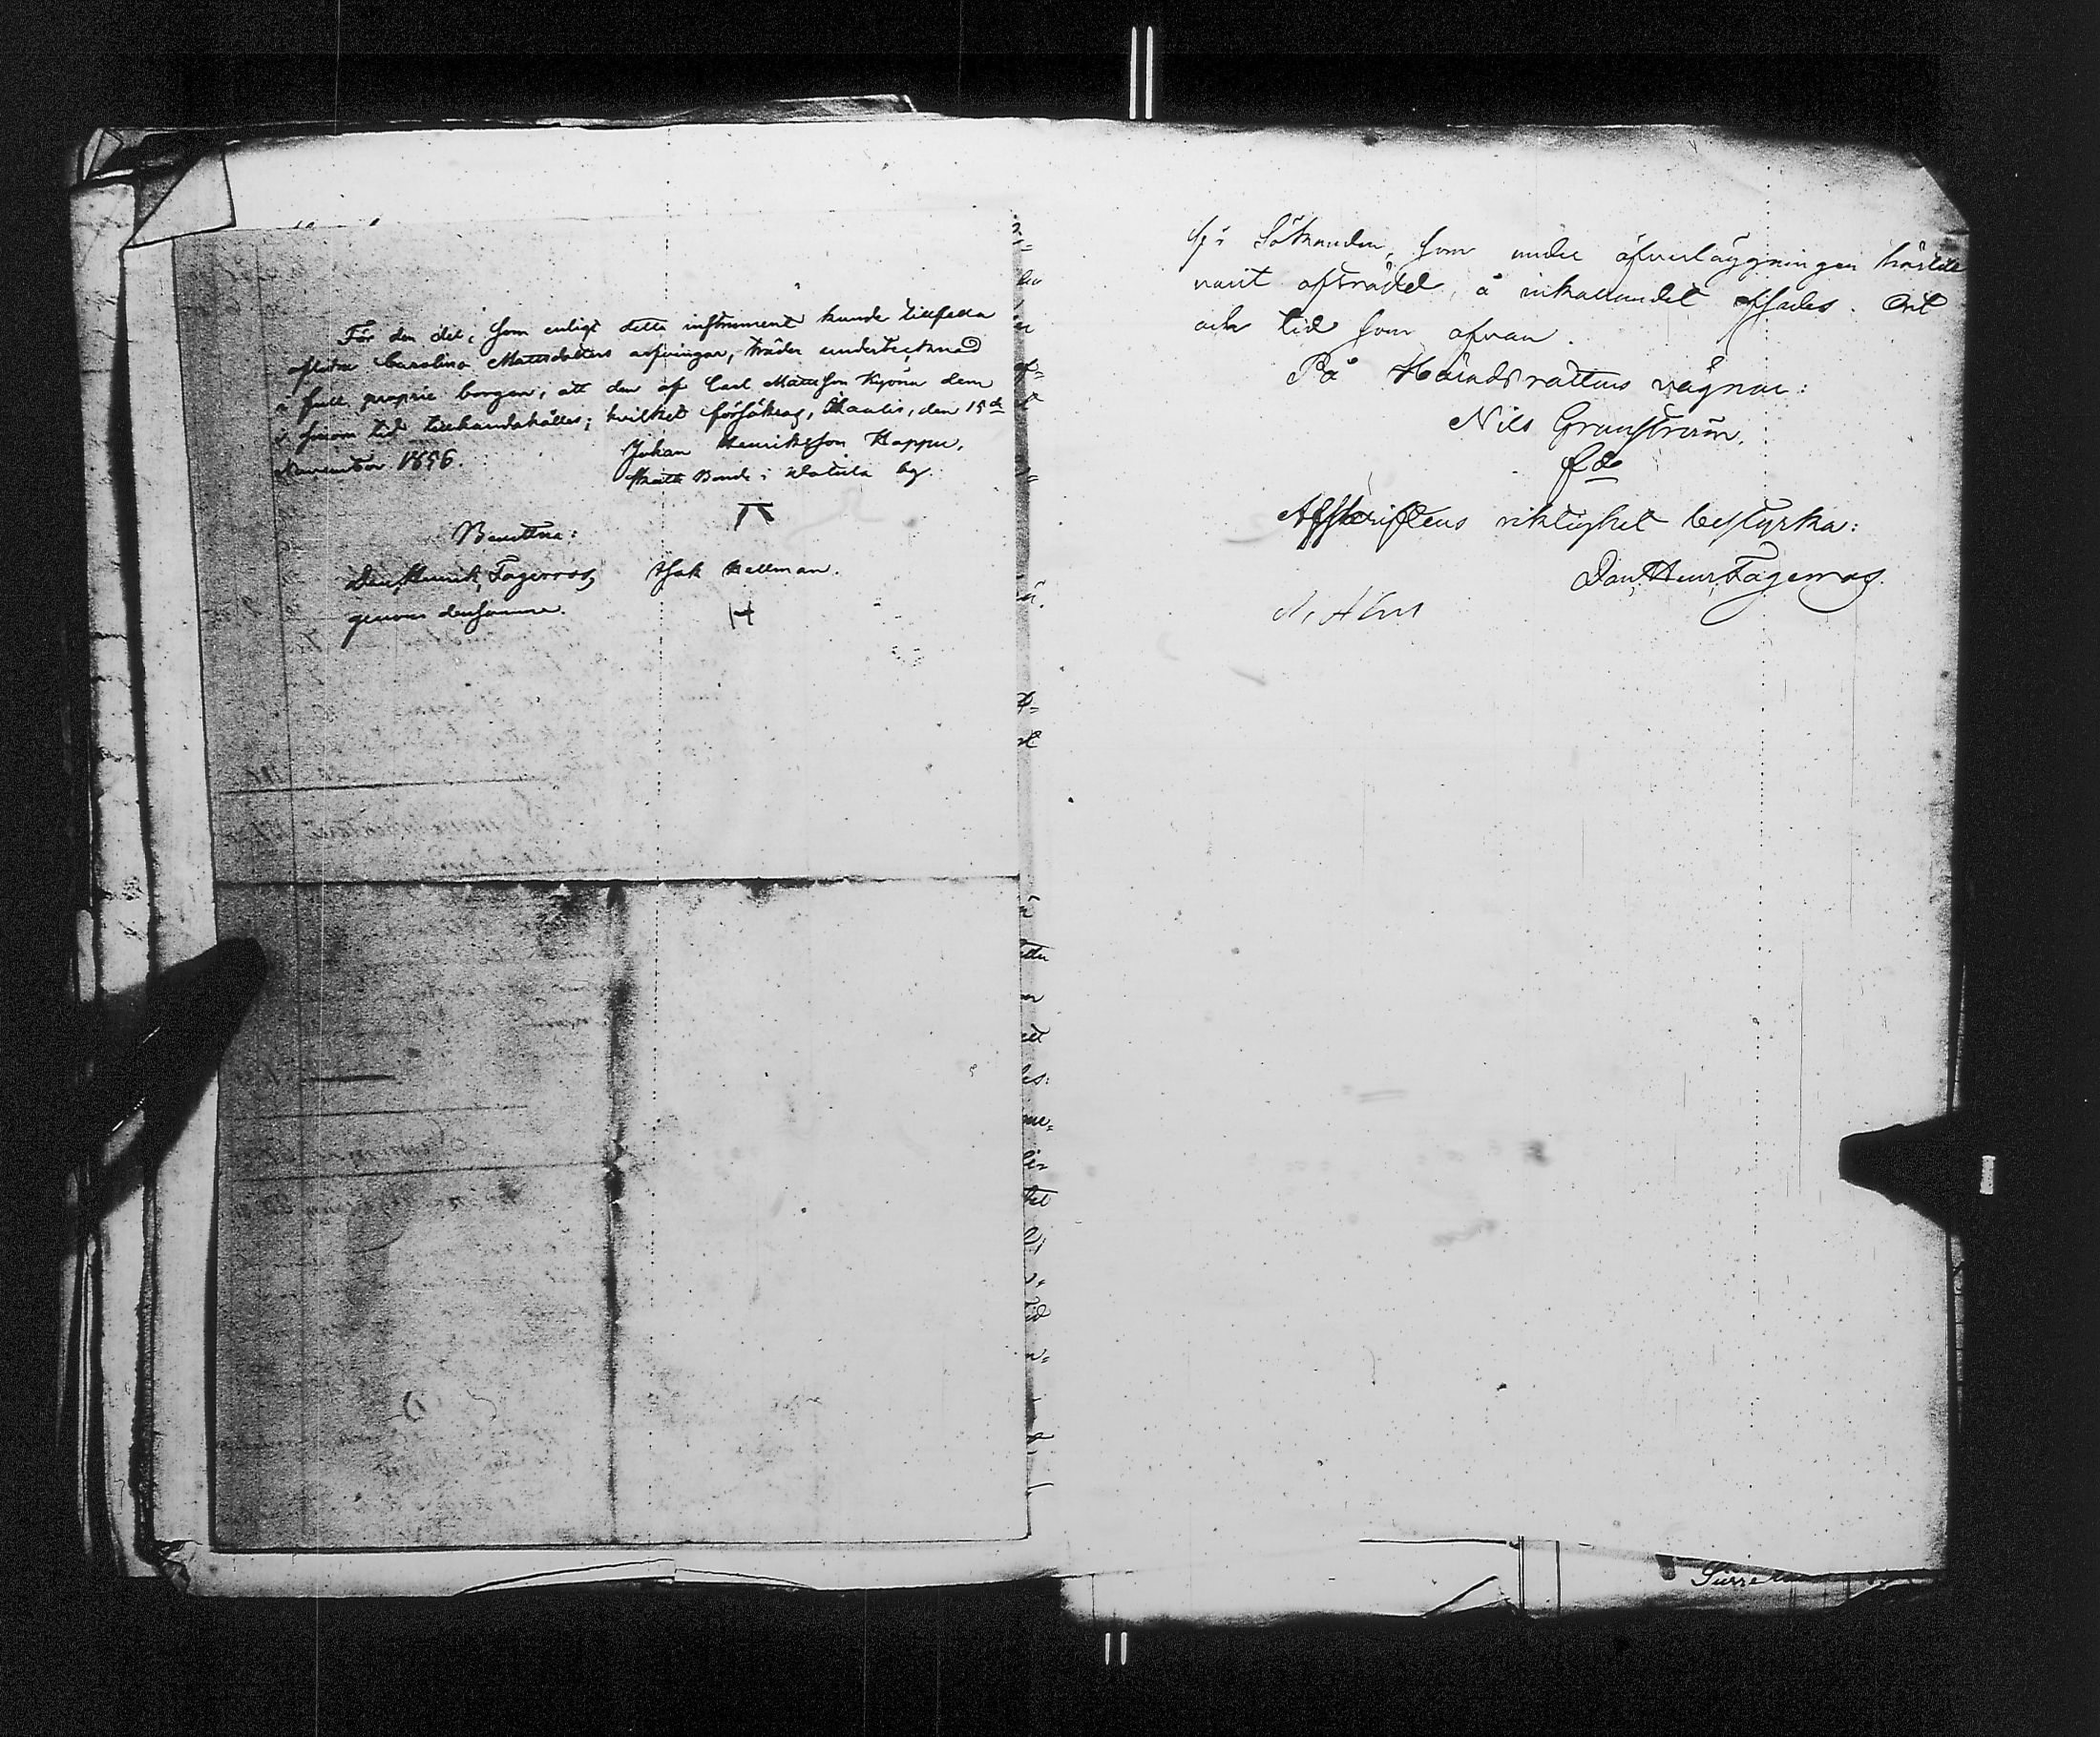 För den del, som enligt detta instrument kunde tillfalla
aflidna Carolina Mattsdotters arfvingar, träder undertecknad
i full proprie borgen, att den af Carl Mattsson Kyönä dem
i sinom tid tillhandahålles; hvilket försäkras, den 15de
November 1856. Johan Henriksson Happu,
Skatte Bonde i Watula by.
Bevittna:
Dan. Henrik Fageroos, Isak Hellman.
genom densamme. H
för Sökanden, som under öfverläggningen härtill
varit afträdd, å inkallandet afsades. Ort
och tid som ofvan.
På Häradsrättens vägnar:
Nils Granström.
Afskriftens riktighet bestyrka:
Dan. Henr. Fageroos.